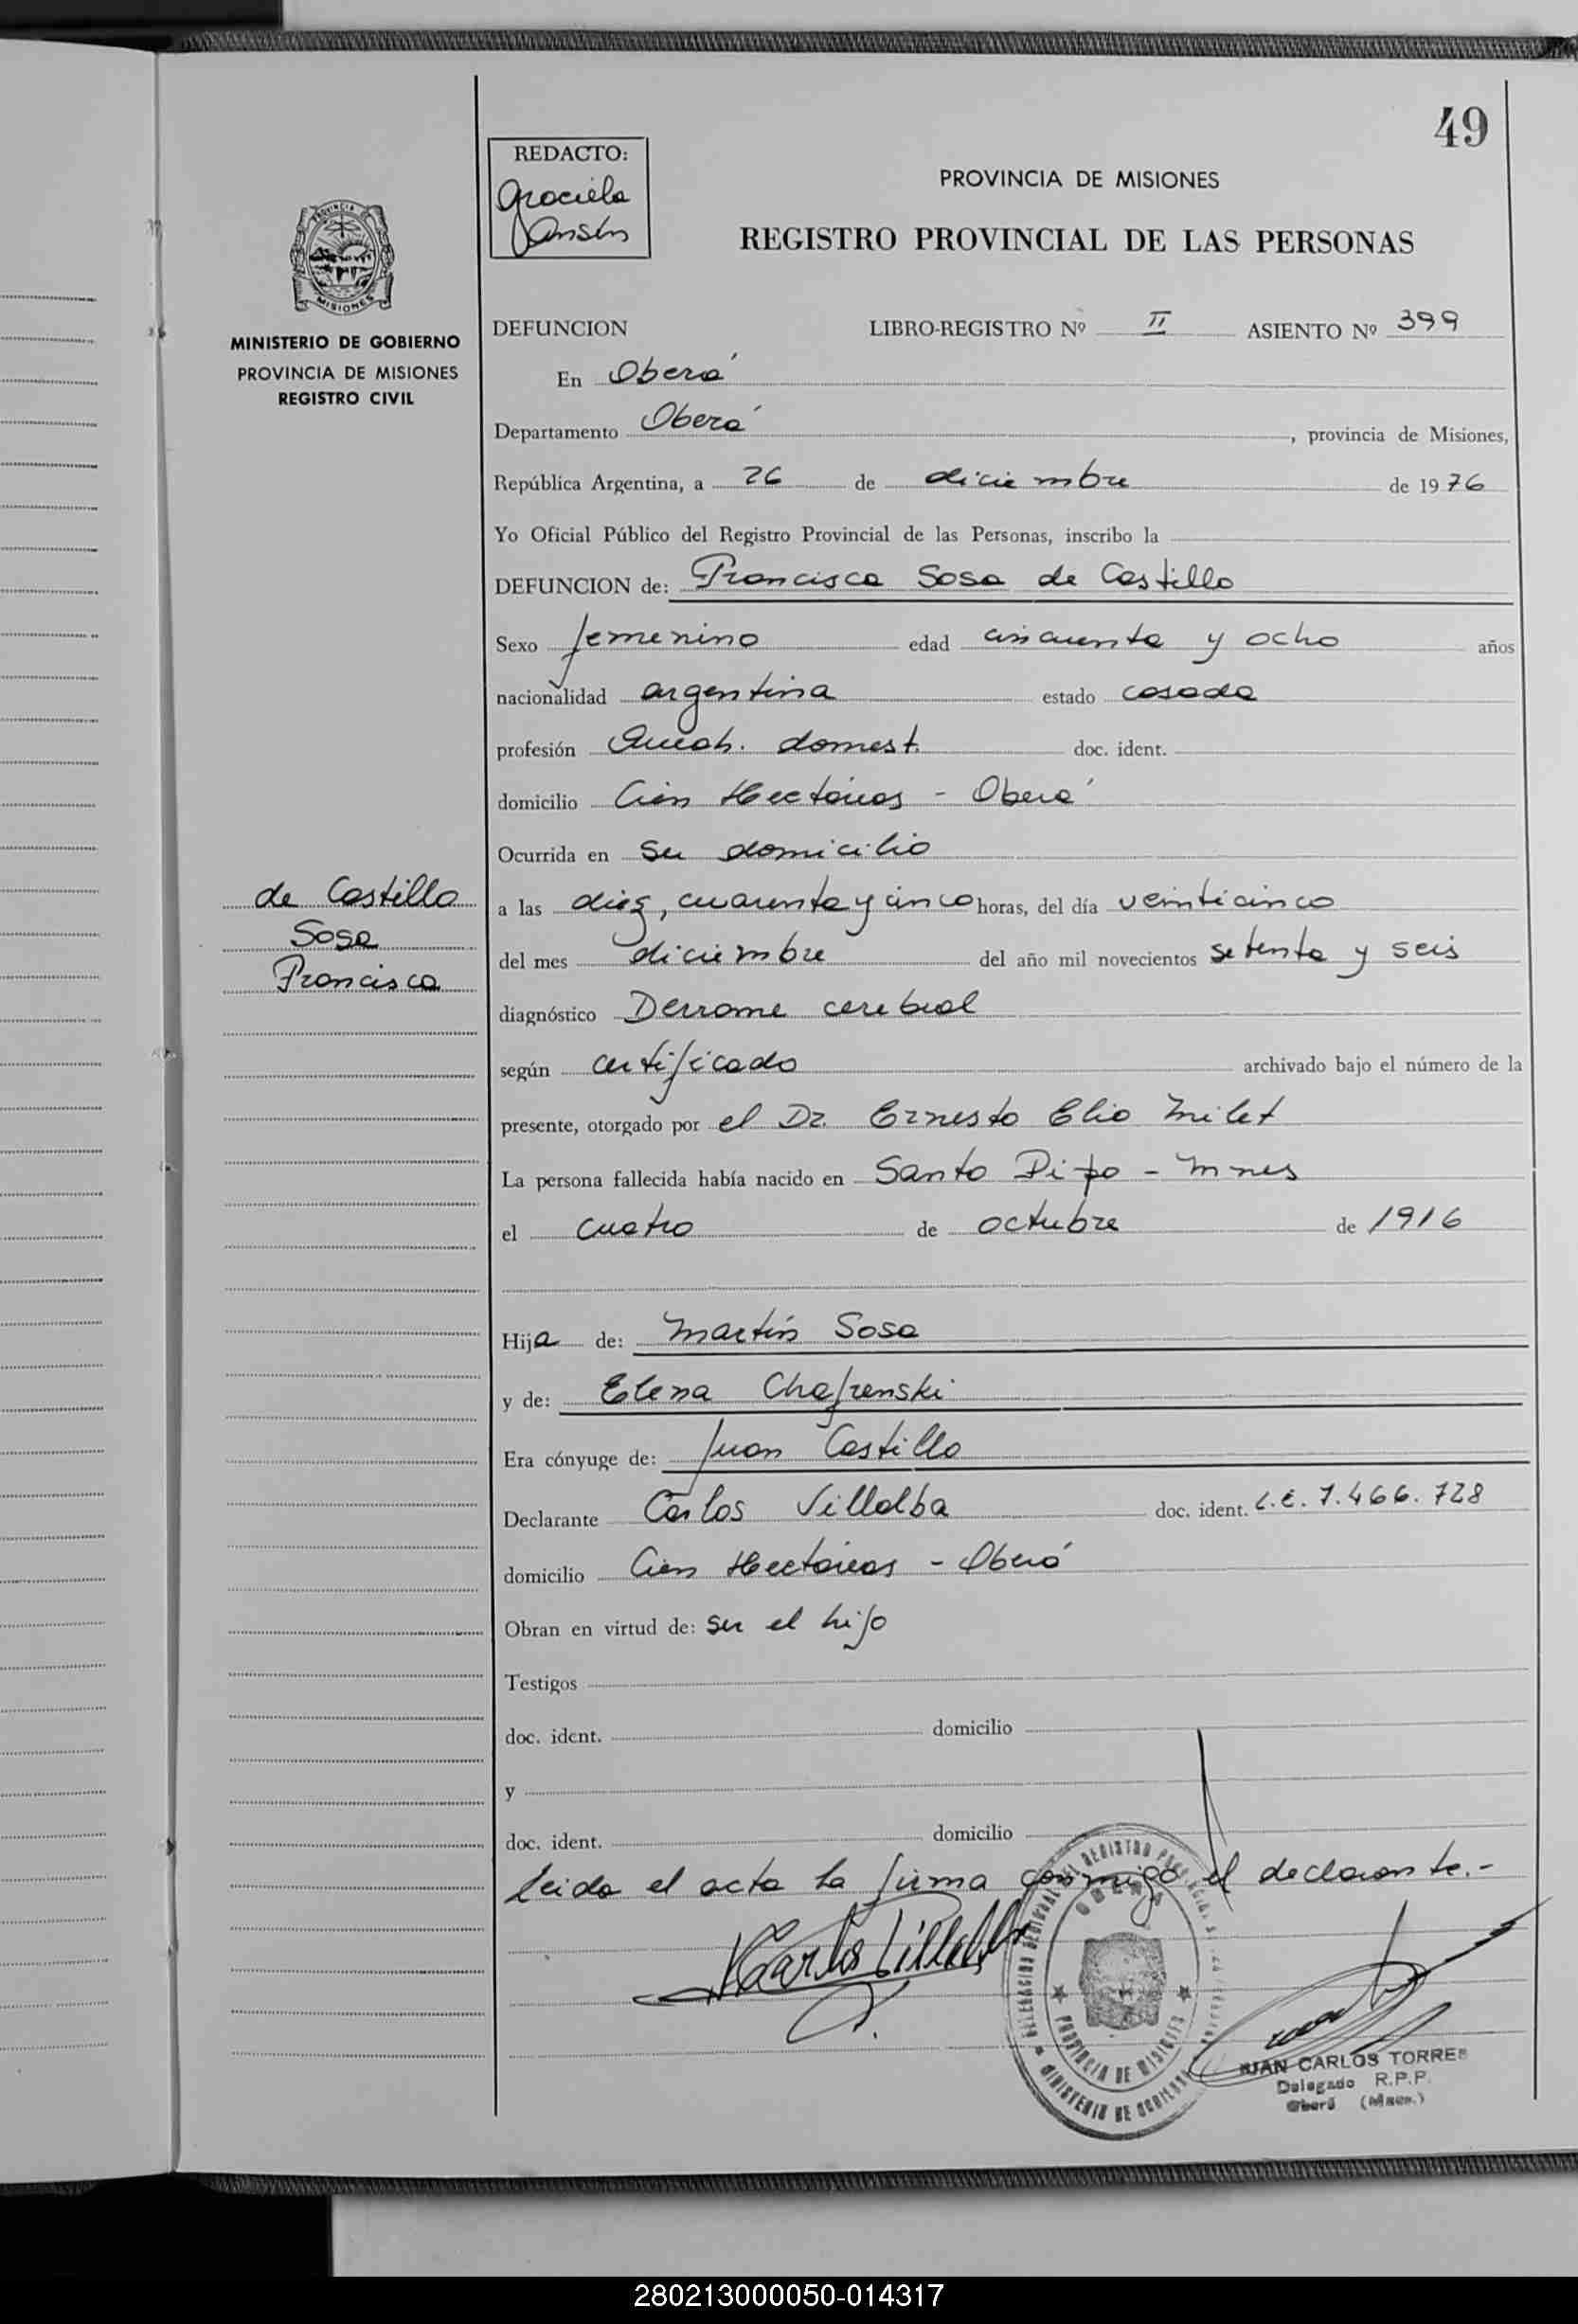 49
REDACTO:
Graciela
Jansén
PROVINCIA DE MISIONES
REGISTRO PROVINCIAL DE LAS PERSONAS
PROVINCIA DE
MISIONES
MINISTERIO DE GOBIERNO
PROVINCIA DE MISIONES
REGISTRO CIVIL
DEFUNCION LIBRO-REGISTRO Nº II ASIENTO Nº 399
En Oberá
Departamento Oberá, provincia de Misiones,
República Argentina, a 26 de diciembre de 1976
Yo Oficial Público del Registro Provincial de las Personas, inscribo la
DEFUNCION de: Francisca Sosa de Castillo
Sexo femenino edad cincuenta y ocho años
nacionalidad argentina estado casada
profesión Queah. domest. doc. ident.
domicilio Cien Hectáreas - Oberá
Ocurrida en su domicilio
a las diez, cuarenta y cinco horas, del día veinticinco
del mes diciembre del año mil novecientos setenta y seis
diagnóstico Derrame cerebral
según certificado archivado bajo el número de la
presente, otorgado por el Dr. Ernesto Elio Milet
La persona fallecida había nacido en Santo Pipo - Mnes
el cuatro de octubre de 1916
Hija de: Martín Sosa
y de: Elena Chafrenski
Era cónyuge de: Juan Castillo
Declarante Carlos Villalba doc. ident. L.E. 7.466.728
domicilio Cien Hectáreas - Oberá
Obran en virtud de: ser el hijo
Testigos
doc. ident. domicilio
y
doc. ident. domicilio
leida el acta la firma conmigo el declarante.-
de Castillo
Sosa
Francisca
Carlos Villalba
OBERA
PROVINCIA DE MISIONES
MINISTERIO DE GOBIERNO
JUAN CARLOS TORRES
Delegado R.P.P.
Oberá (Mnes.)
280213000050-014317